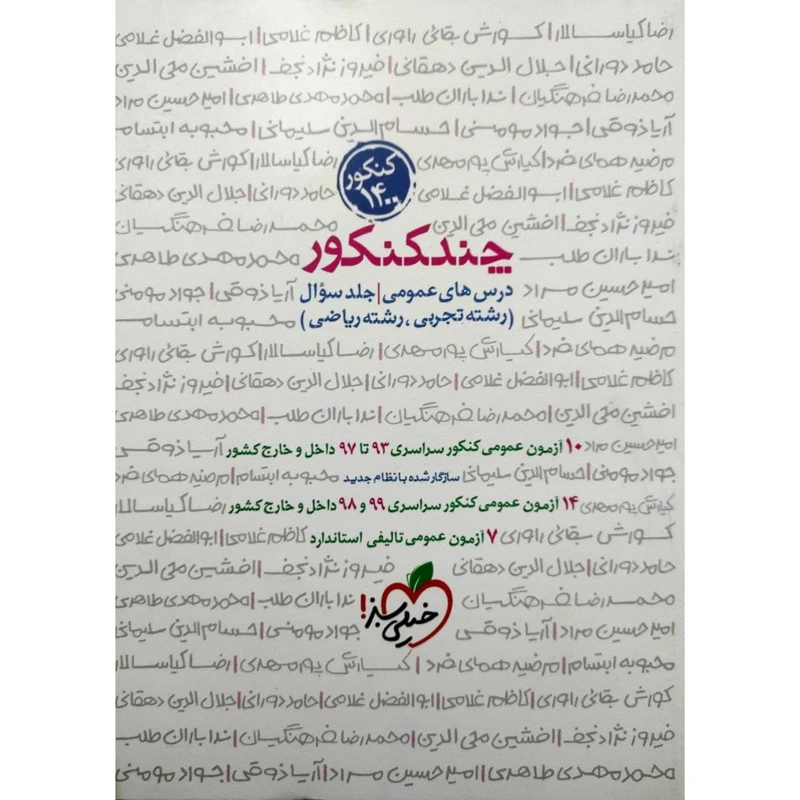 رضا کیاسالار | کورش بقائی راوری | کاظم غلامی | ابوالفضل غلامی
حامد دورانی | جلال الدین دهقانی | فیروز نژادنجف | افشین محی الدین
محمدرضا فرهنگیان | ندا باران طلب | محمدمهدی طاهری | امیرحسین مراد
آریا ذوقی | جواد مومنی | حسام الدین سلیمانی | محبوبه ابتسام
مرضیه همای فرد | کیارش پورمهدی رضا کیاسالار | کورش بقائی راوری
کنکور
۱۴۰۰
کاظم غلامی | ابوالفضل غلامی حامد دورانی | جلال الدین دهقانی
فیروز نژادنجف | افشین محی الدین محمدرضا فرهنگیان
چند کنکور
ندا باران طلب محمدمهدی طاهری
امیرحسین مراد درس های عمومی | جلد سؤال آریا ذوقی | جواد مومنی
حسام الدین سلیمانی (رشته تجربی، رشته ریاضی) محبوبه ابتسام
مرضیه همای فرد | کیارش پورمهدی | رضا کیاسالار | کورش بقائی راوری
کاظم غلامی | ابوالفضل غلامی | حامد دورانی | جلال الدین دهقانی | فیروز نژادنجف
افشین محی الدین | محمدرضا فرهنگیان | ندا باران طلب | محمدمهدی طاهری
امیرحسین مراد ۱۰ آزمون عمومی کنکور سراسری ۹۳ تا ۹۷ داخل و خارج کشور آریا ذوقی
جواد مومنی | حسام الدین سلیمانی سازگار شده با نظام جدید محبوبه ابتسام | مرضیه همای فرد
کیارش پورمهدی ۱۴ آزمون عمومی کنکور سراسری ۹۹ و ۹۸ داخل و خارج کشور رضا کیاسالار
کورش بقائی راوری ۷ آزمون عمومی تالیفی استاندارد کاظم غلامی | ابوالفضل غلامی
حامد دورانی | جلال الدین دهقانی فیروز نژادنجف | افشین محی الدین
محمدرضا فرهنگیان ندا باران طلب | محمدمهدی طاهری
خیلی سبز!
امیرحسین مراد | آریا ذوقی جواد مومنی | حسام الدین سلیمانی
محبوبه ابتسام | مرضیه همای فرد | کیارش پورمهدی | رضا کیاسالار
کورش بقائی راوری | کاظم غلامی | ابوالفضل غلامی | حامد دورانی | جلال الدین دهقانی
فیروز نژادنجف | افشین محی الدین | محمدرضا فرهنگیان | ندا باران طلب
محمدمهدی طاهری | امیرحسین مراد | آریا ذوقی | جواد مومنی